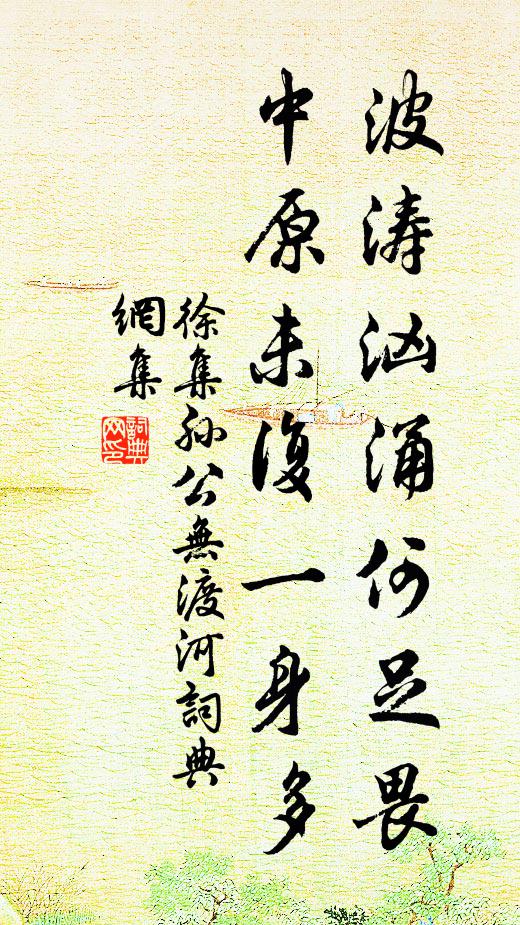 波涛汹涌何足畏
中原未復一身多
徐集孙公無渡河詞典
網集
詞典
网印